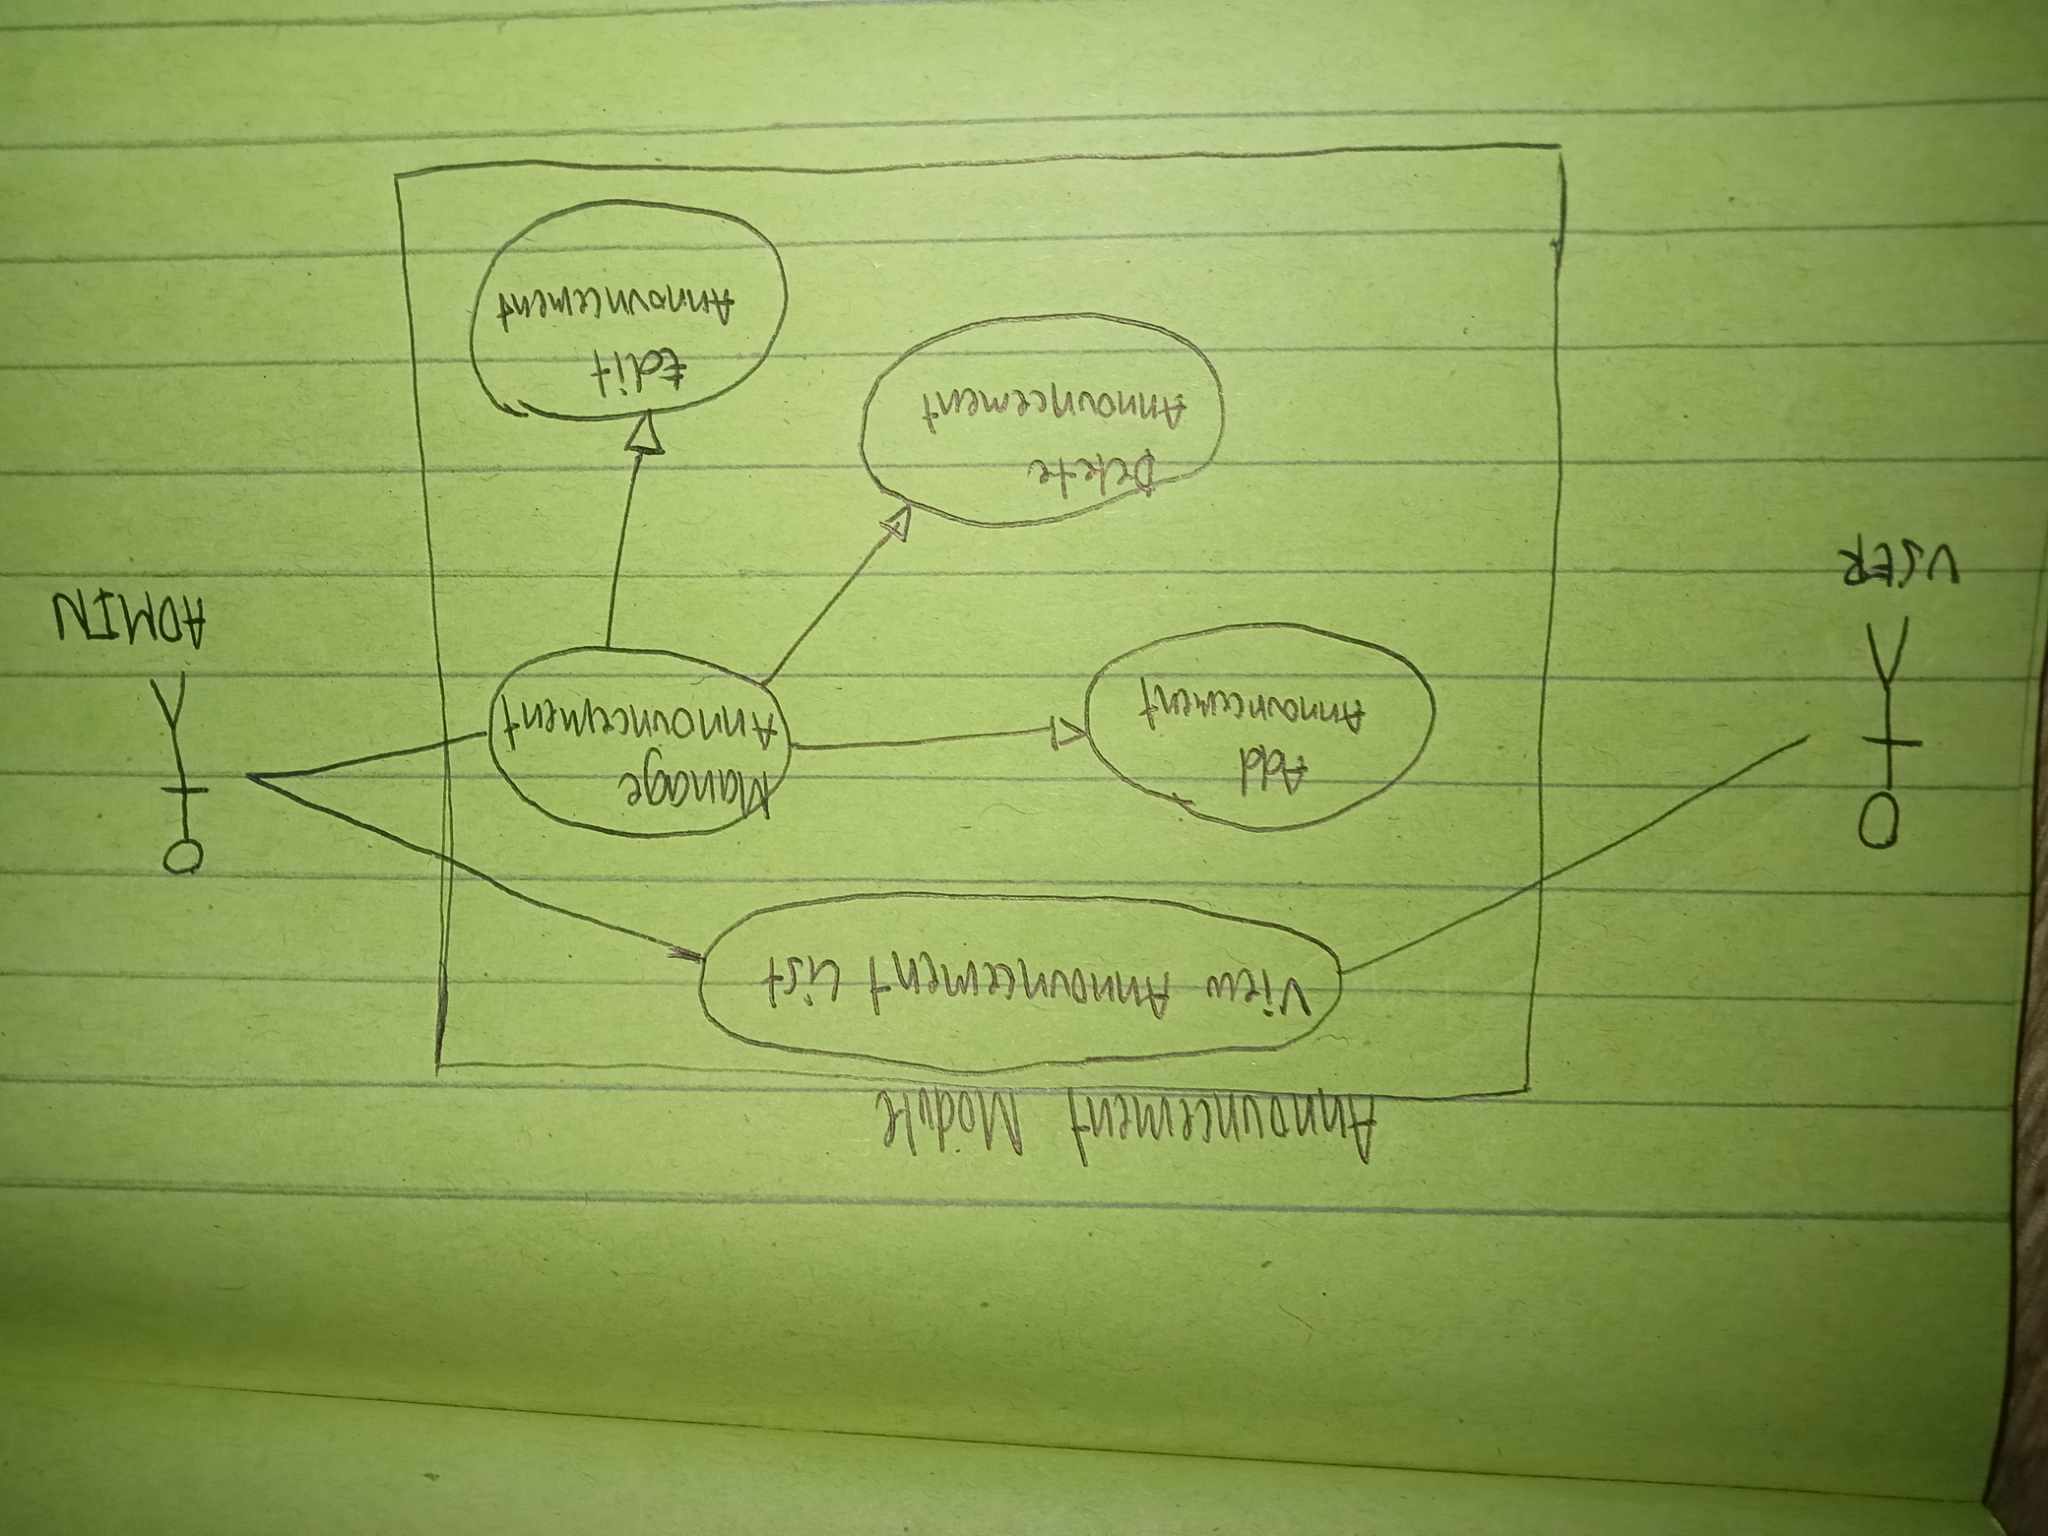 Announcement Module
View Announcement List
Add
Announcement
Manage
Announcement
USER
ADMIN
Delete
Announcement
Edit
Announcement